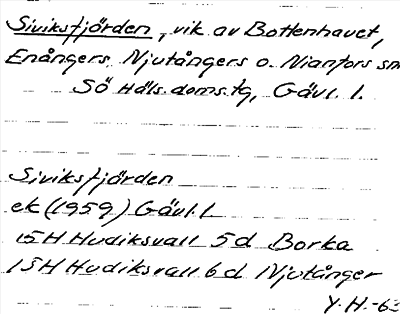 Siviksfjärden, vik av Bottenhavet,
Enångers, Njutångers o. Nianfors sn
Sö Häls. doms. tg, Gävl. l.
Siviksfjärden
ek (1959) Gävl. l.
15H Hudiksvall 5d Borka
15H Hudiksvall 6d Njutånger
Y. H. -63